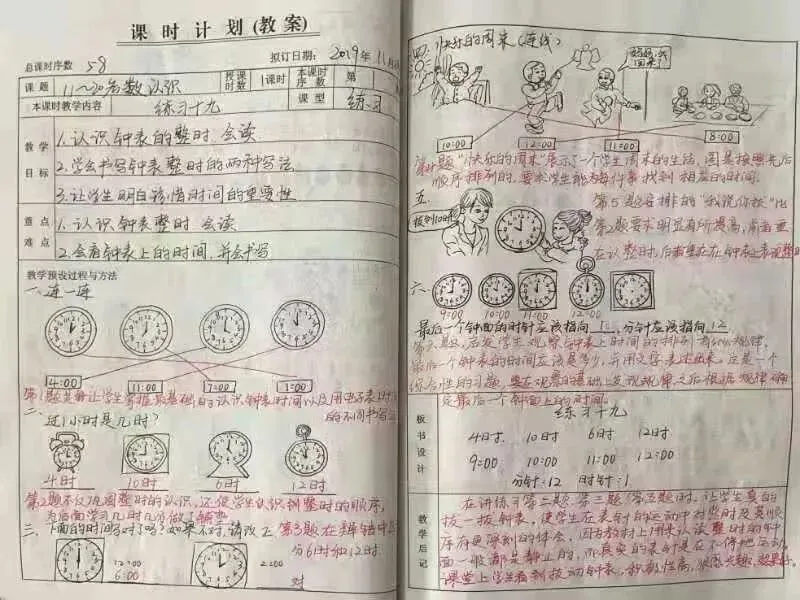 课时计划(教案)
总课时序数 58 拟订日期: 2019年11月
课题 11~20各数认识 授课时数 1课时 本课时序数 第
本课时教学内容 练习十九 课型 练习
教学目标
1.认识钟表的整时 会读
2.学会书写钟表整时的两种写法
3.让学生明白珍惜时间的重要性
重点难点
1.认识钟表整时 会读
2.会看钟表上的时间,并会书写
教学预设过程与方法
一、连一连
4:00 11:00 7:00 1:00
第1题是让学生掌握最基础的认识钟表时间以及用电子表
的不同书写
二、过1小时是几时?
4时 10时 6时 12时
第2题不仅巩固整时的认识,还使学生认识到整时的顺序,
为后面学习几时几分做了铺垫
三、下面的时间写对了吗?如果不对,请改正 第3题在辨错中区
分6时和12时.
12:00
6:00
2:00
对
四.快乐的周末(连线)
妈妈,我回来了
10:00 12:00 11:00 8:00
第4题"快乐的周末"展示了一个学生周末的生活,图是按照先后
顺序排列的,要求学生能为每件事找到相应的时间.
五.
拨到10时
第5题安排的"我说你拨"比
第2题要求明显有所提高,前者重
在认整时,后者重在在钟表上表现整时
六、
9:00 10:00 11:00 12:00
最后一个钟面的时针应该指向12,分针应该指向12
第六题,启发学生观察钟表上时间的排列有什么规律,
最后一个钟表的时间应该是多少,并用文字表述出来,这是一个
综合性的习题,要在观察的基础上发现规律,之后根据规律确
定最后一个钟面上的时间.
板书设计
练习十九
4时 10时 6时 12时
9:00 10:00 11:00 12:00
分针:12 时针:1
教学后记
在讲练习第二题、第三题、第五题时,让学生真的
拨一拨钟表,使学生在表针的运动中对整时及其顺
序有更深刻的体会,因为教材上用来认读整时的钟
面一般都是静止的,而真实的表针是在不停地运动
课堂上学生看到拨动钟表,积极性高,很感兴趣,效果好.